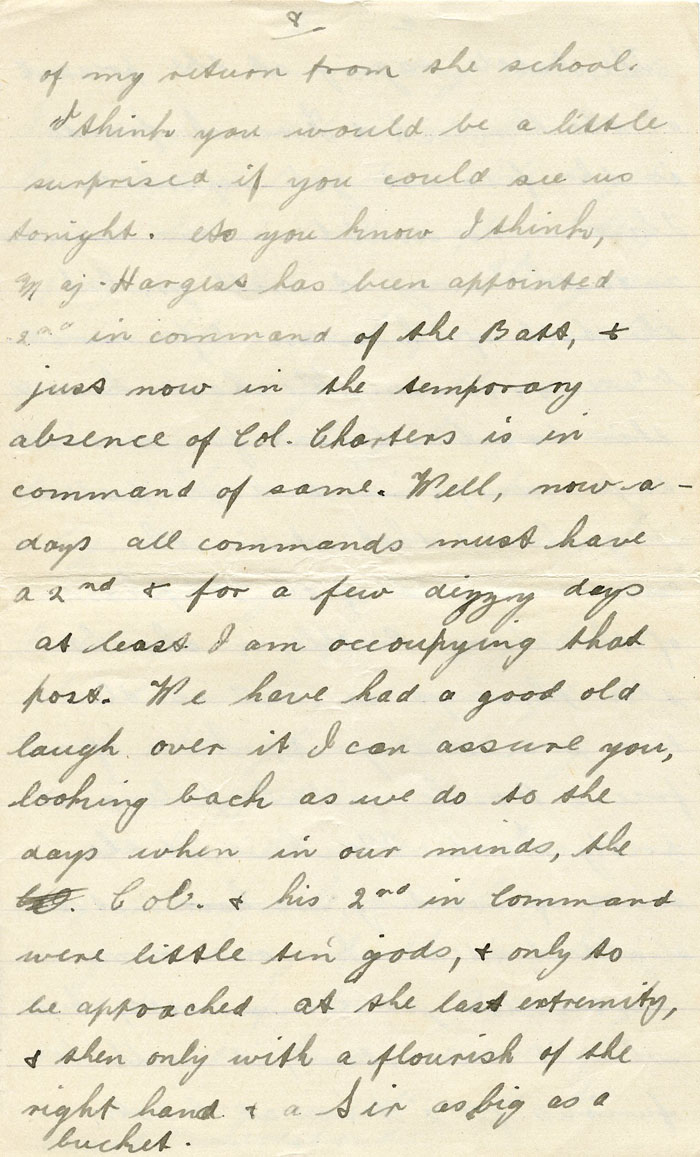 8
of my return from the school.
I think you would be a little
surprised if you could see us
tonight. As you know I think,
Maj. Hargess has been appointed
2nd in command of the Batt, &
just now in the temporary
absence of Col. Charters is in
command of same. Well, now-a-
days all commands must have
a 2nd & for a few dizzy days
at least I am occoupying that
post. We have had a good old
laugh over it I can assure you,
looking back as we do to the
days when in our minds, the
Col. & his 2nd in Command
were little tin gods, & only to
be approached at the last extremity,
& then only with a flourish of the
right hand & a Sir as big as a
bucket.